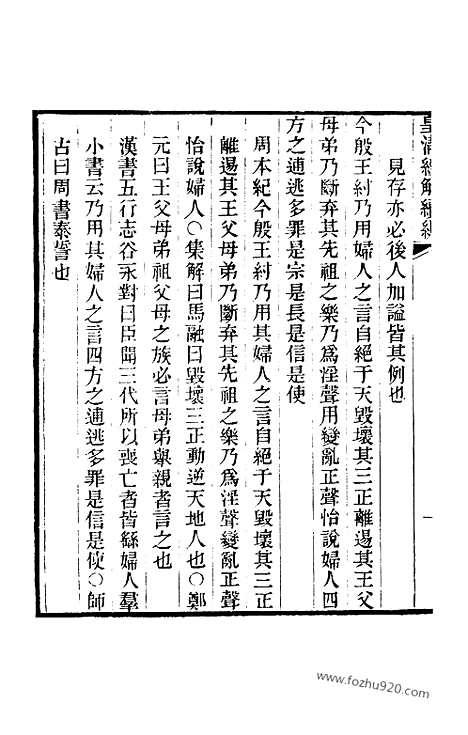 皇清經解續編
一
見存亦必後人加謚皆其例也
今殷王紂乃用婦人之言自絕于天毀壞其三正離逷其王父
母弟乃斷弃其先祖之樂乃爲淫聲用變亂正聲怡說婦人四
方之逋逃多罪是宗是長是信是使
周本紀今殷王紂乃用其婦人之言自絕于天毀壞其三正
離逷其王父母弟乃斷弃其先祖之樂乃爲淫聲變亂正聲
怡說婦人○集解曰馬融曰毀壞三正動逆天地人也○鄭
元曰王父母弟祖父母之族必言母弟舉親者言之也
漢書五行志谷永對曰臣聞三代所以喪亡者皆繇婦人羣
小書云乃用其婦人之言四方之逋逃多罪是信是使○師
古曰周書泰誓也
www.fozhu920.com